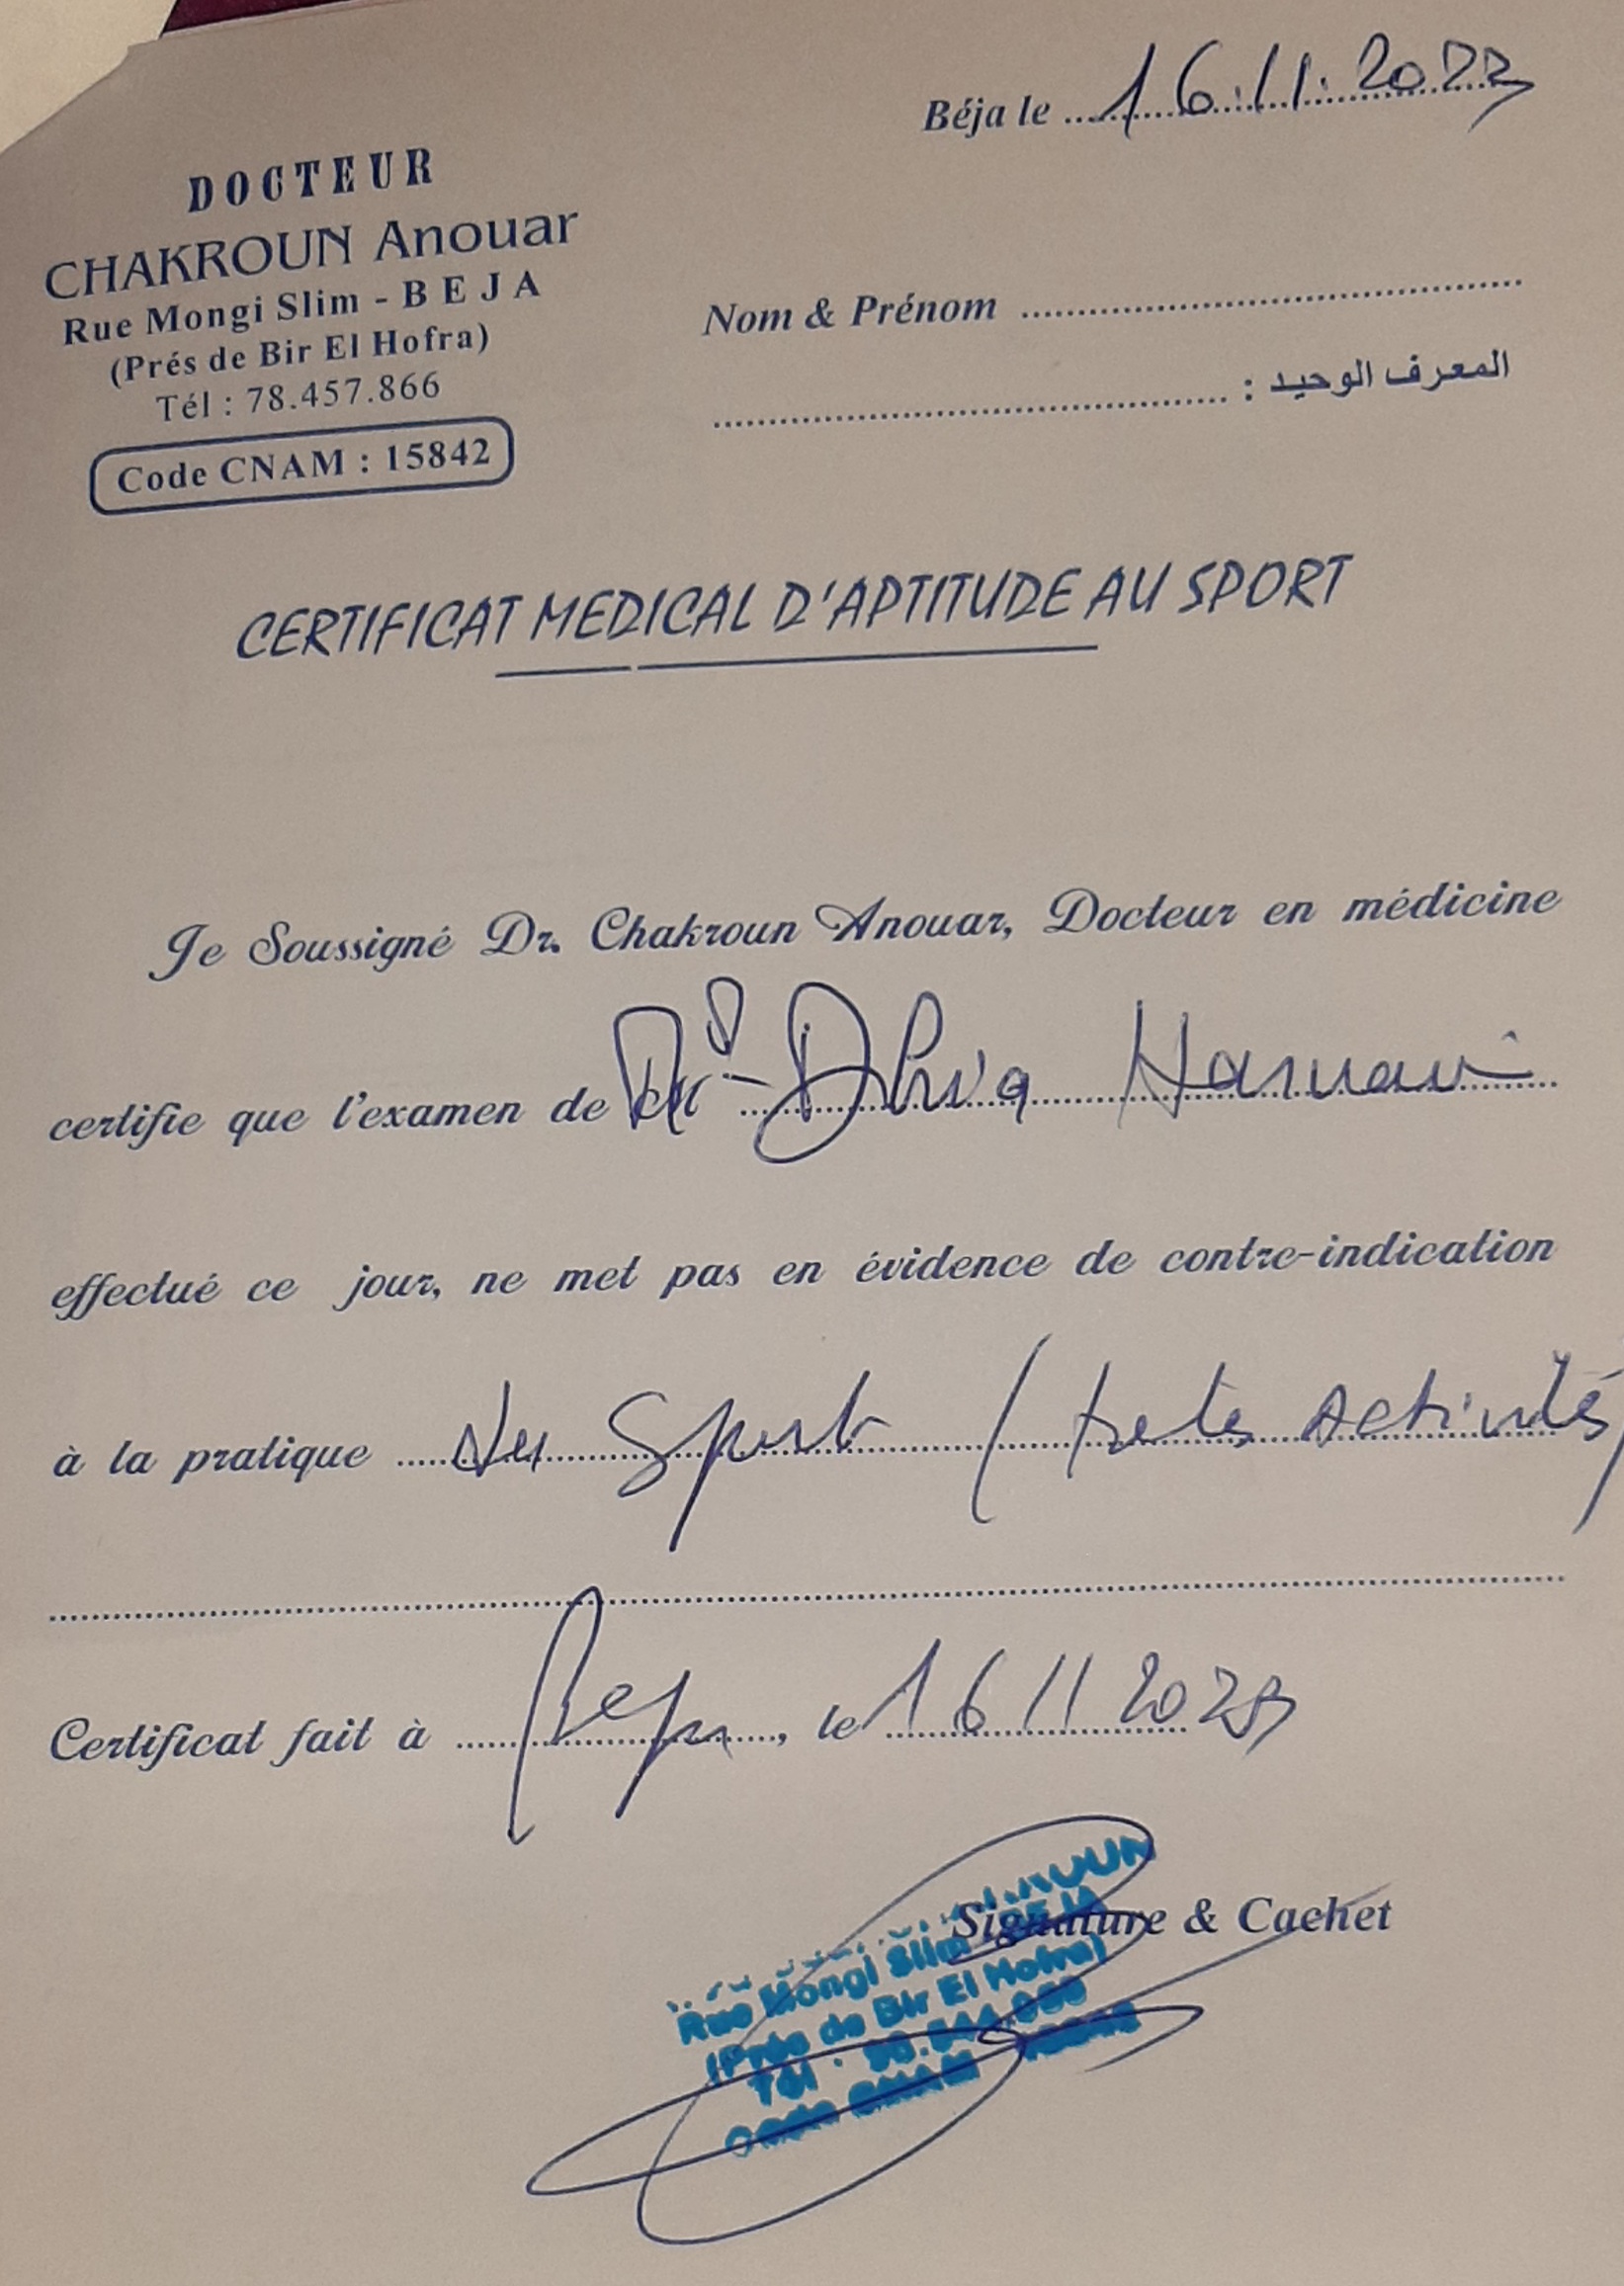 Béja le 16.11.2023
DOCTEUR
CHAKROUN Anouar
Rue Mongi Slim - BEJA
(Prés de Bir El Hofra)
Tél : 78.457.866
Code CNAM : 15842
Nom & Prénom
المعرف الوحيد :
CERTIFICAT MEDICAL D'APTITUDE AU SPORT
Je Soussigné Dr. Chakroun Anouar, Docteur en médicine
certifie que l'examen de Dhia
effectué ce jour, ne met pas en évidence de contre-indication
à la pratique du Sport ( activités
Certificat fait à Beja, le 16 11 2023
Signature & Cachet
Rue Mongi Slim
(Prés de Bir El Hofra)
Tél :
Code CNAM